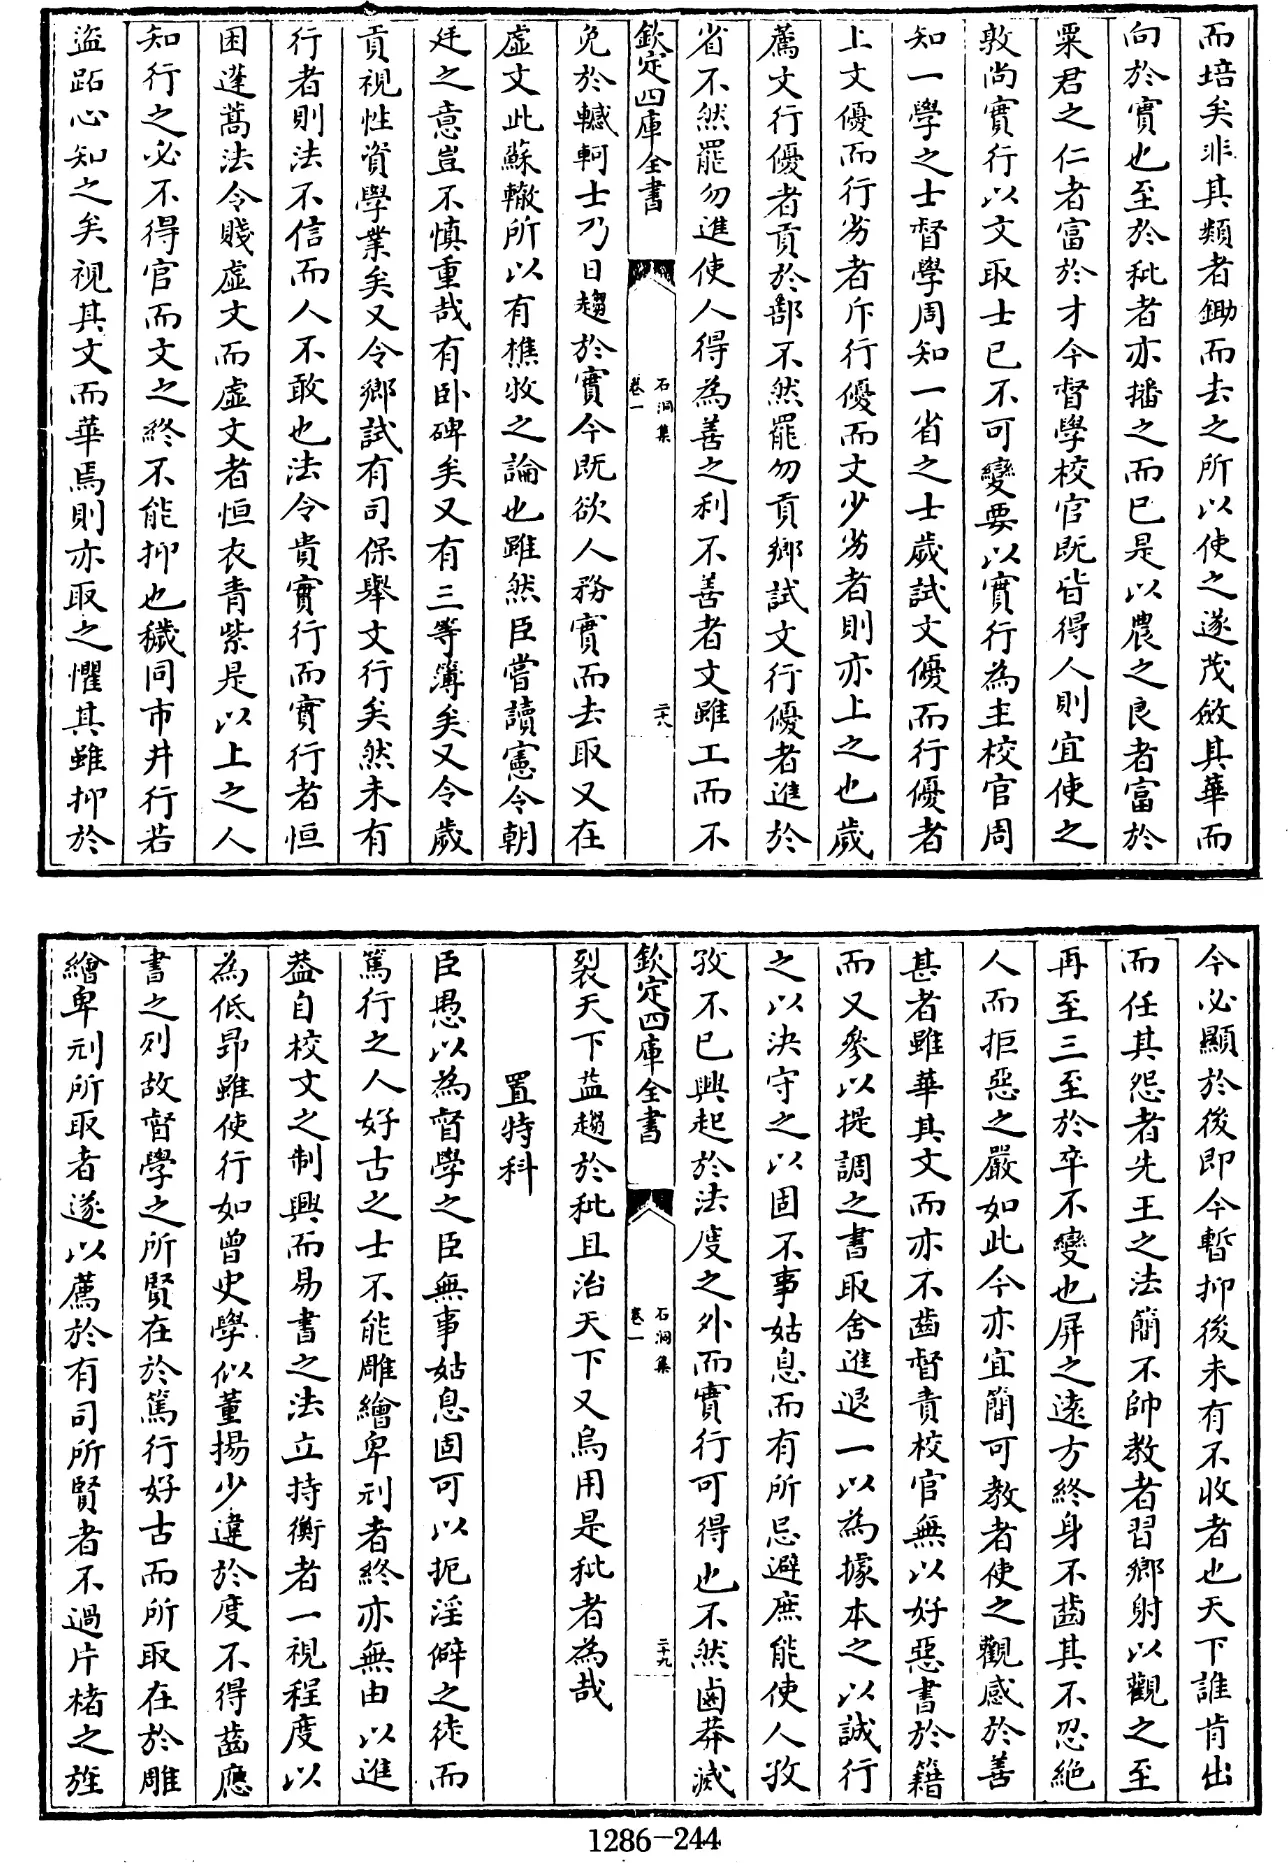 而培矣非其類者鋤而去之所以使之遂茂斂其華而
向於實也至於秕者亦播之而已是以農之良者富於
粟君之仁者富於才今督學校官既皆得人則宜使之
敦尚實行以文取士已不可變要以實行為主校官周
知一學之士督學周知一省之士歲試文優而行優者
上文優而行劣者斥行優而文少劣者則亦上之也歲
薦文行優者貢於部不然罷勿貢鄉試文行優者進於
省不然罷勿進使人得為善之利不善者文雖工而不
欽定四庫全書
石洞集
卷一
二十八
免於轗軻士乃日趨於實今既欲人務實而去取又在
虛文此蘇轍所以有樵牧之論也雖然臣嘗讀憲令朝
廷之意豈不慎重哉有臥碑矣又有三等簿矣又令歲
貢視性資學業矣又令鄉試有司保舉文行矣然未有
行者則法不信而人不敢也法令貴實行而實行者恒
困蓬蒿法令賤虛文而虛文者恒衣青紫是以上之人
知行之必不得官而文之終不能抑也穢同市井行若
盜跖心知之矣視其文而華焉則亦取之懼其雖抑於
今必顯於後即今暫抑後未有不收者也天下誰肯出
而任其怨者先王之法簡不帥教者習鄉射以觀之至
再至三至於卒不變也屏之遠方終身不齒其不忍絕
人而拒惡之嚴如此今亦宜簡可教者使之觀感於善
甚者雖華其文而亦不齒督責校官無以好惡書於籍
而又參以提調之書取舍進退一以為據本之以誠行
之以決守之以固不事姑息而有所忌避庶能使人孜
孜不已興起於法度之外而實行可得也不然鹵莽滅
欽定四庫全書
石洞集
卷一
二十九
裂天下益趨於秕且治天下又烏用是秕者為哉
置特科
臣愚以為督學之臣無事姑息固可以扼淫僻之徒而
篤行之人好古之士不能雕繪卑刓者終亦無由以進
葢自校文之制興而易書之法立持衡者一視程度以
為低昂雖使行如曾史學似董揚少違於度不得齒應
書之列故督學之所賢在於篤行好古而所取在於雕
繪卑刓所取者遂以薦於有司所賢者不過片楮之旌
1286-244